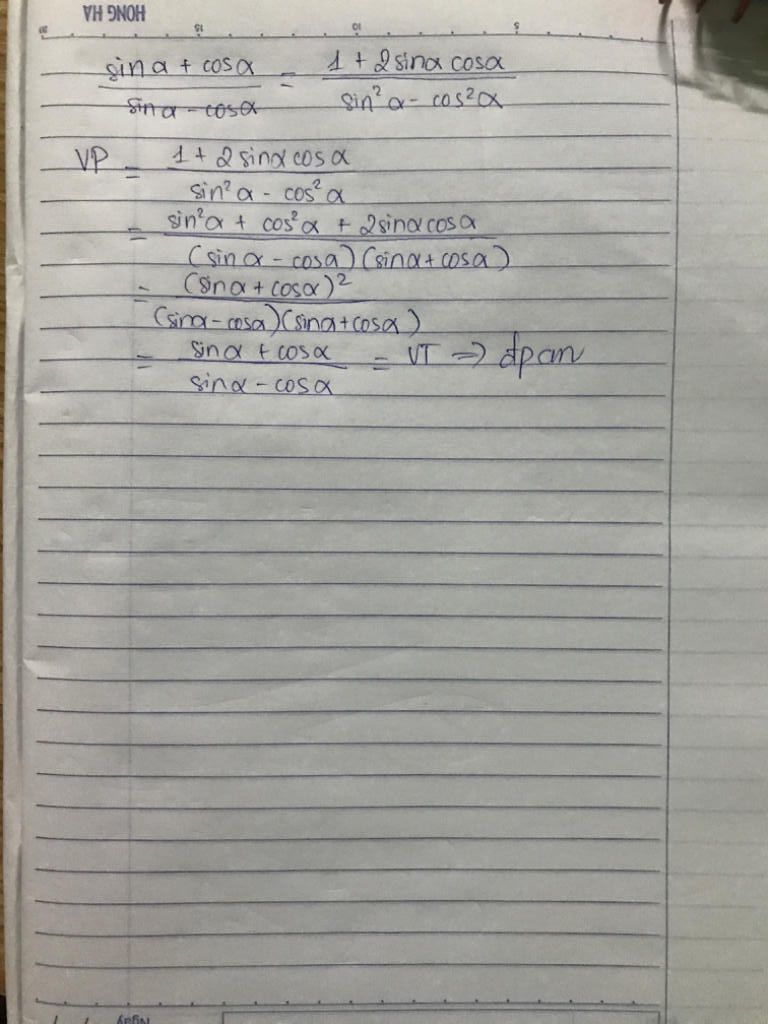 HONG HA
20 15 10 5
sin α + cos α / sin α - cos α = 1 + 2 sin α cos α / sin² α - cos² α
VP = 1 + 2 sin α cos α / sin² α - cos² α
= sin² α + cos² α + 2 sin α cos α / (sin α - cos α)(sin α + cos α)
= (sin α + cos α)² / (sin α - cos α)(sin α + cos α)
= sin α + cos α / sin α - cos α = VT ⇒ đpcm
Ngày / /